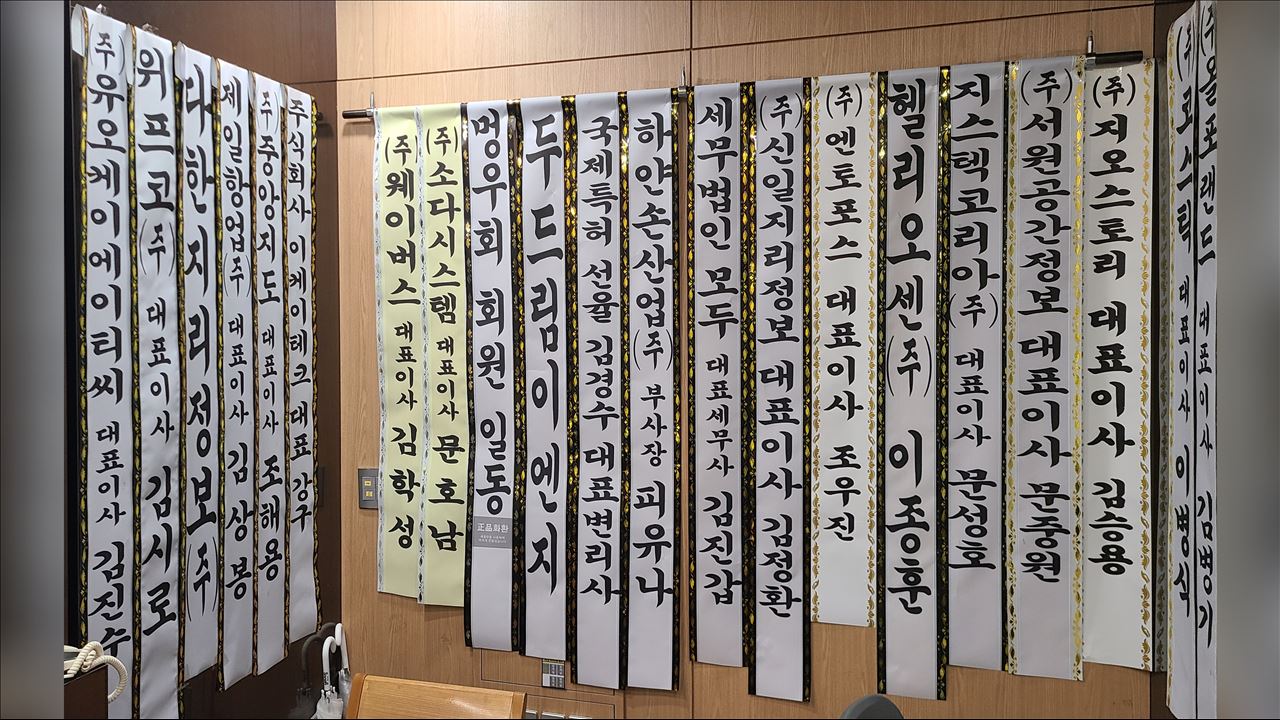 (주)유오케이에이티씨 대표이사 김진수
위프코(주) 대표이사 김시로
다한지리정보(주)
제일항업(주) 대표이사 김상봉
(주)중앙지도 대표이사 조해용
주식회사 이케이테크 대표 강구
(주)웨이버스 대표이사 김학성
(주)소다시스템 대표이사 문호남
멍우회 회원 일동
正品화환
두드림이엔지
국제특허 선율 김경수 대표변리사
하얀손산업(주) 부사장 피유나
세무법인 모두 대표세무사 김진갑
(주)신일지리정보 대표이사 김정환
(주)엔토포스 대표이사 조우진
헬리오센(주) 이종훈
지스텍코리아(주) 대표이사 문성호
(주)서원공간정보 대표이사 문중원
(주)지오스토리 대표이사 김승용
(주)코스틱 대표이사 이병식
(주)올포랜드 대표이사 김병기